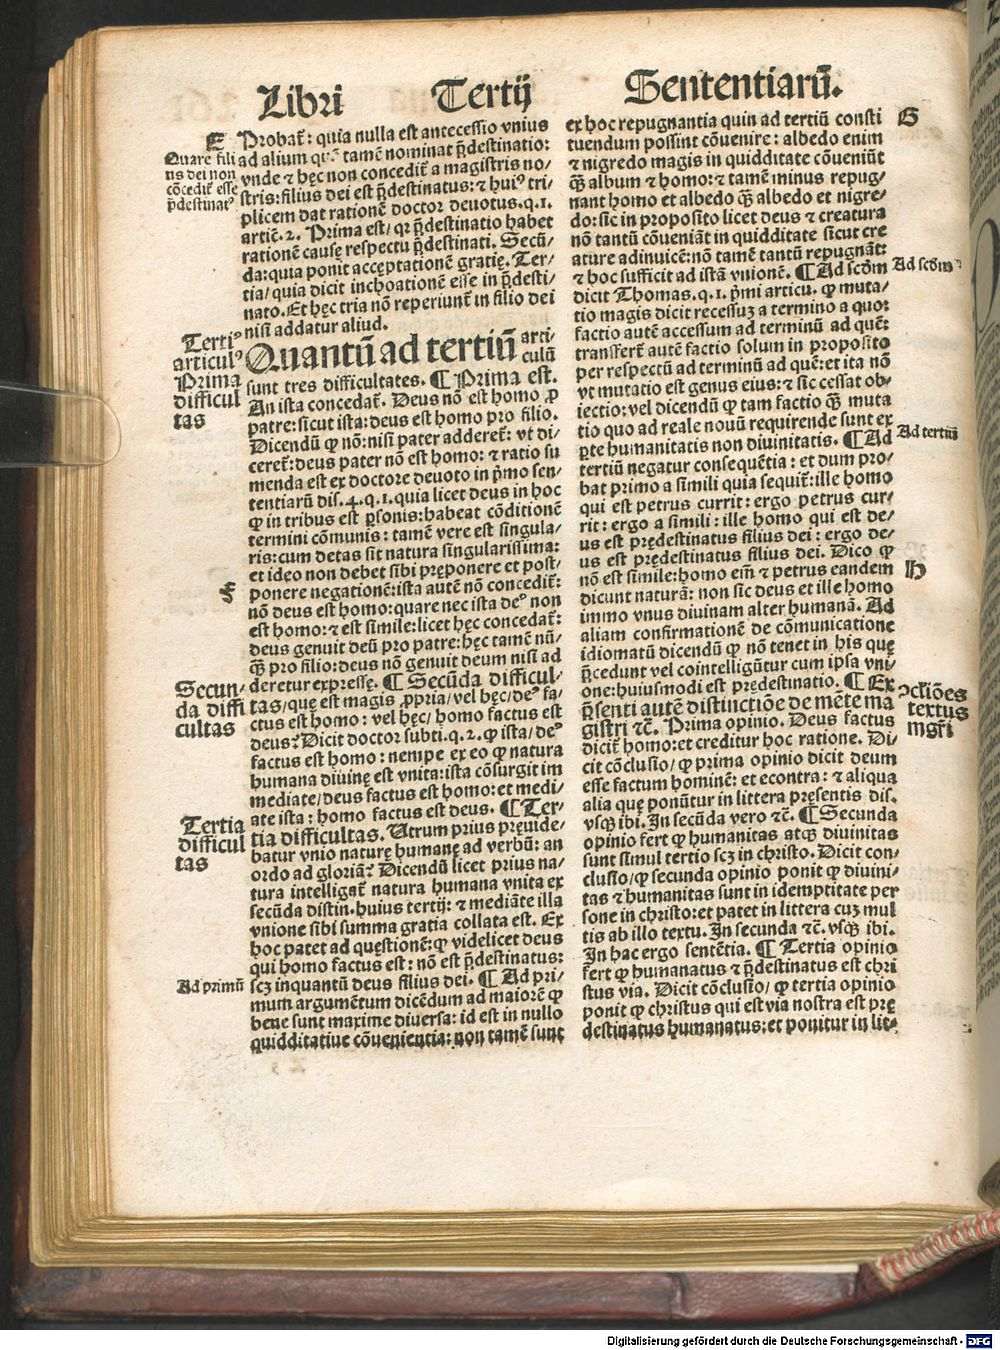 Libri Tertij Sententiarū.
E
Quare fili
us dei non
cōcedit̄ esse
p̄destinatꝰ
Probat̄: quia nulla est antecessio vnius
ad alium quē tamē nominat p̄destinatio:
vnde & hęc non concedit̄ a magistris no/
stris: filius dei est p̄destinatus: & huiꝰ tri/
plicem dat rationē doctor deuotus. q. 1.
artic̄. 2. Prima est/ qꝛ p̄destinatio habet
rationē causę respectu p̄destinati. Secū/
da: quia ponit acceptationē gratię. Ter/
tia/ quia dicit inchoationē esse in p̄desti/
nato. Et hęc tria nō reperiunt̄ in filio dei
nisi addatur aliud.
Tertiꝰ
articulꝰ
Prima
difficul
tas
Quantū ad tertiū arti-
culū
sunt tres difficultates. ¶ Prima est.
An ista concedat̄. Deus nō est homo ꝓ
patre: sicut ista: deus est homo pro filio.
Dicendū ꝙ nō: nisi pater adderet̄: vt di/
ceret̄: deus pater nō est homo: & ratio su
menda est ex doctore deuoto in p̄mo sen/
tentiarū dis. 4. q. 1. quia licet deus in hoc
ꝙ in tribus est ꝑsonis: habeat cōditionē
termini cōmunis: tamē vere est singula/
ris: cum deitas sit natura singularissima:
et ideo non debet sibi pręponere et post/
F
ponere negationē: ista autē nō concedit̄:
nō deus est homo: quare nec ista deꝰ non
est homo: & est simile: licet hęc concedat̄:
deus genuit deū pro patre: hęc tamē nū/
ꝙ̄ pro filio: deus nō genuit deum nisi ad
deretur expressę. ¶ Secūda difficul-
Secun-
da diffi
cultas
tas/ quę est magis ꝓpria/ vel hęc/ deꝰ fa/
ctus est homo: vel hęc/ homo factus est
deus? Dicit doctor subti. q. 2. ꝙ ista/ deꝰ
factus est homo: nempe ex eo ꝙ natura
humana diuinę est vnita: ista cōsurgit im
mediate/ deus factus est homo: et medi/
ate ista: homo factus est deus. ¶ Ter-
Tertia
difficul
tas
tia difficultas. Utrum prius pręuide/
batur vnio naturę humanę ad verbū: an
ordo ad gloriā? Dicendū licet prius na/
tura intelligat̄ natura humana vnita ex
secūda distin. huius tertij: & mediāte illa
vnione sibi summa gratia collata est. Ex
hoc patet ad quęstionē: ꝙ videlicet deus
qui homo factus est: nō est p̄destinatus:
Ad primū
scꝫ inquantū deus filius dei. ¶ Ad pri/
mum argumētum dicēdum ad maiorē ꝙ
bene sunt maxime diuersa: id est in nullo
quidditatiue cōuenientia: non tamē sunt
ex hoc repugnantia quin ad tertiū consti
G
tuendum possint cōuenire: albedo enim
& nigredo magis in quidditate cōueniūt
ꝙ̄ album & homo: & tamē minus repug/
nant homo et albedo ꝙ̄ albedo et nigre/
do: sic in proposito licet deus & creatura
nō tantū cōueniāt in quidditate sicut cre
ature adinuicē: nō tamē tantū repugnāt:
& hoc sufficit ad istā vnionē. ¶ Ad scd̄m
Ad scd̄m
dicit Thomas. q. 1. p̄mi articu. ꝙ muta/
tio magis dicit recessuꝫ a termino a quo:
factio autē accessum ad terminū ad quē:
transfert̄ autē factio solum in proposito
per respectū ad terminū ad quē: et ita nō
vt mutatio est genus eius: & sic cessat ob/
iectio: vel dicendū ꝙ tam factio ꝙ̄ muta
tio quo ad reale nouū requirende sunt ex
ꝑte humanitatis non diuinitatis. ¶ Ad
Ad tertiū
tertiū negatur consequētia: et dum pro/
bat primo a simili quia sequit̄: ille homo
qui est petrus currit: ergo petrus cur/
rit: ergo a simili: ille homo qui est de/
us est prędestinatus filius dei: ergo de/
us est prędestinatus filius dei. Dico ꝙ
nō est simile: homo em̄ & petrus eandem
H
dicunt naturā: non sic deus et ille homo
immo vnus diuinam alter humanā. Ad
aliam confirmationē de cōmunicatione
idiomatū dicendū ꝙ nō tenet in his quę
p̄cedunt vel cointelligūtur cum ipsa vni/
one: huiusmodi est prędestinatio. ¶ Ex
ↄcliōes
textus
mgr̄i
p̄senti autē distinctiōe de mēte ma
gistri &c̄. Prima opinio. Deus factus
dicit̄ homo: et creditur hoc ratione. Di/
cit cōclusio/ ꝙ prima opinio dicit deum
esse factum hominē: et econtra: & aliqua
alia quę ponūtur in littera pręsentis dis.
vsqꝫ ibi. In secūda vero &c̄. ¶ Secunda
opinio fert ꝙ humanitas atqꝫ diuinitas
sunt simul tertio scꝫ in christo. Dicit con/
clusio/ ꝙ secunda opinio ponit ꝙ diuini/
tas & humanitas sunt in idemptitate per
sone in christo: et patet in littera cuꝫ mul
tis ab illo textu. In secunda &c̄. vsqꝫ ibi.
In hac ergo sentētia. ¶ Tertia opinio
fert ꝙ humanatus & p̄destinatus est chri
stus via. Dicit cōclusio/ ꝙ tertia opinio
ponit ꝙ christus qui est via nostra est pre
destinatus humanatus: et ponitur in lit-
Digitalisierung gefördert durch die Deutsche Forschungsgemeinschaft - DFG